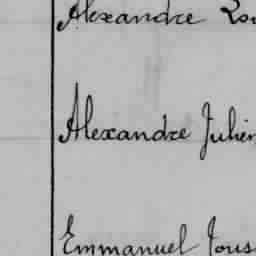 Alexandre
Alexandre Julien
Emmanuel